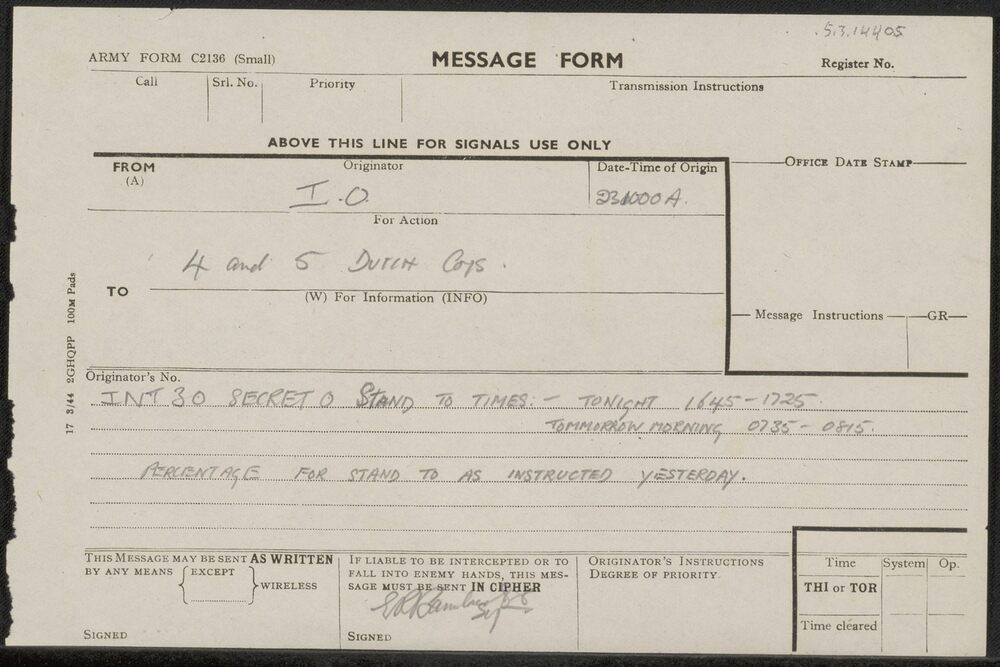 5.3.14405
ARMY FORM C2136 (Small)
MESSAGE FORM
Register No.
Call
Srl. No.
Priority
Transmission Instructions
ABOVE THIS LINE FOR SIGNALS USE ONLY
FROM
(A)
Originator
I.O.
Date-Time of Origin
231000A.
OFFICE DATE STAMP
For Action
4 and 5 DUTCH Coys.
TO
(W) For Information (INFO)
Message Instructions
GR
17 3/44 2GHQPP 100M Pads
Originator's No.
INT 30 SECRET O STAND TO TIMES:- TONIGHT 1645-1725.
TOMMORROW MORNING 0735-0815.
PERCENTAGE FOR STAND TO AS INSTRUCTED YESTERDAY.
THIS MESSAGE MAY BE SENT AS WRITTEN
BY ANY MEANS { EXCEPT } WIRELESS
SIGNED
IF LIABLE TO BE INTERCEPTED OR TO
FALL INTO ENEMY HANDS, THIS MES-
SAGE MUST BE SENT IN CIPHER
SIGNED
ORIGINATOR'S INSTRUCTIONS
DEGREE OF PRIORITY
Time
System
Op.
THI or TOR
Time cleared